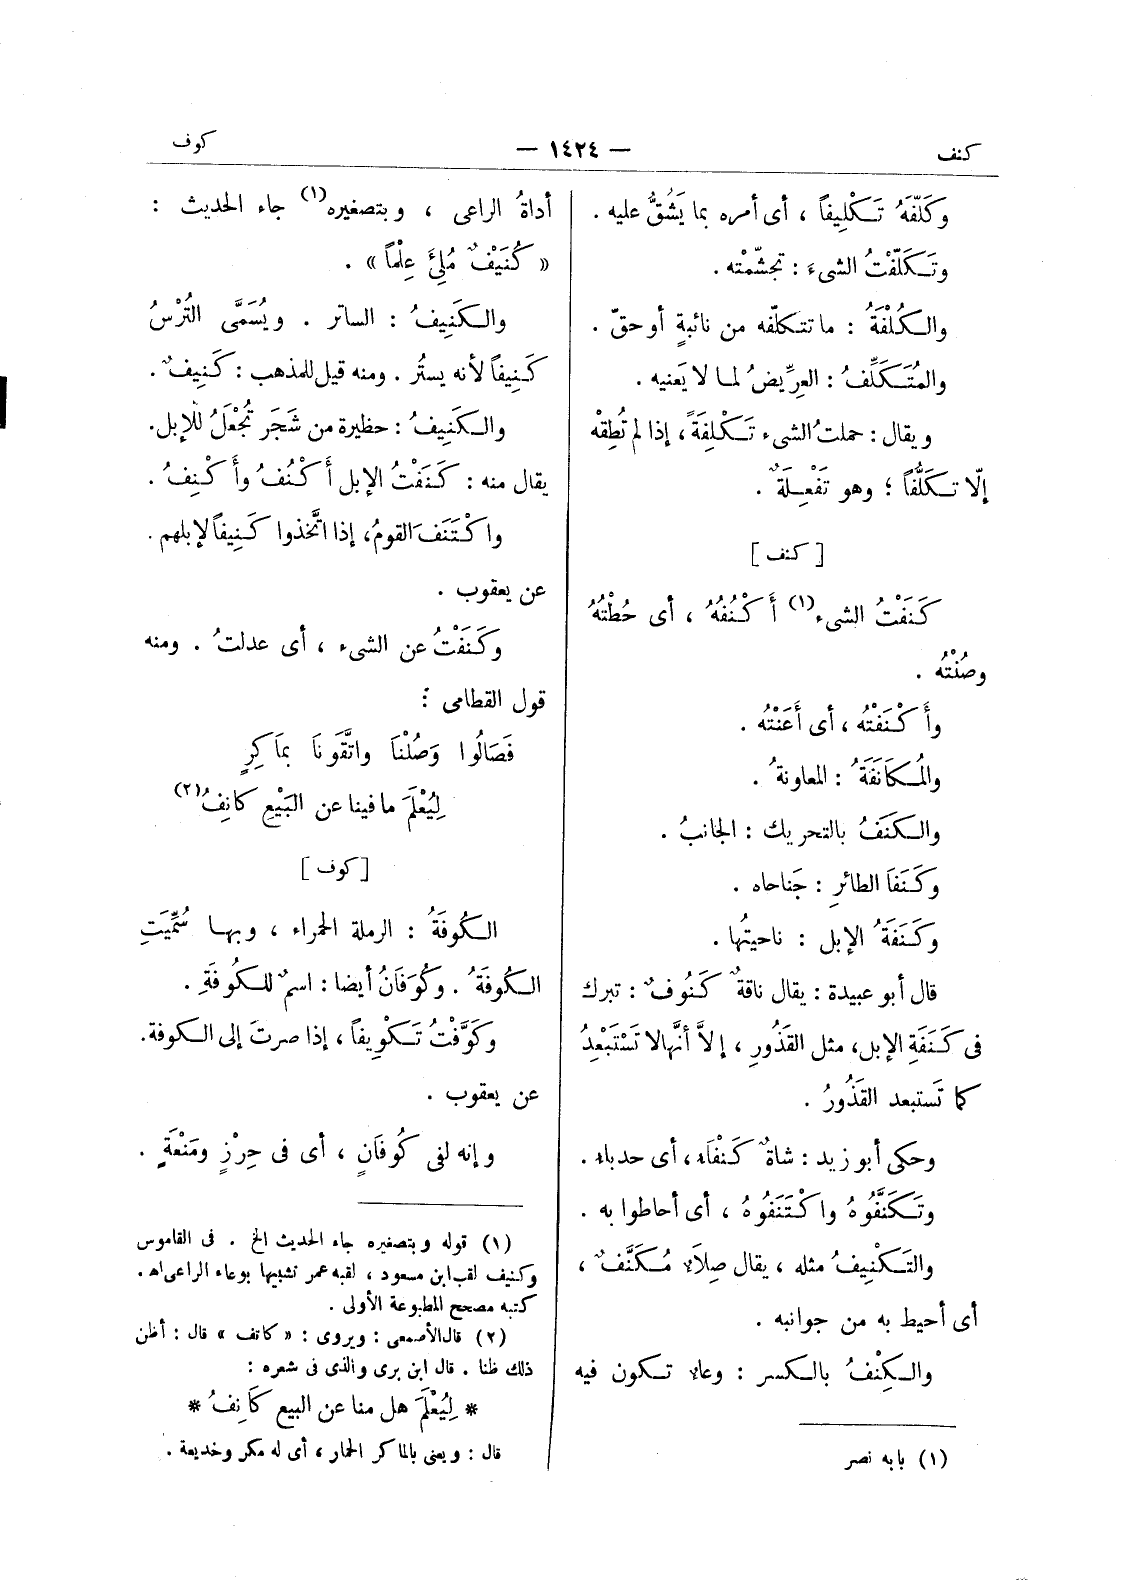 كنف
— ١٤٢٤ —
كوف
وكَلّفَهُ تَكْلِيفاً ، أى أمره بما يَشُقُّ عليه .
وتَكَلّفْتُ الشىءَ : تجشّمْته .
والكُلْفَةُ : ما تتكلّفه من نائبةٍ أو حقّ .
والمُتَكَلِّفُ : العِرِّيضُ لما لا يَعنيه .
ويقال : حملتُ الشىء تَكْلِفَةً ، إذا لم تُطِقْه
إلّا تكَلُّفاً ؛ وهو تَفْعِلَةٌ .
[ كنف ]
كَنَفْتُ الشىء(١) أَكْنُفُهُ ، أى حُطْتُهُ
وصُنْتُه .
وأَكْنَفْتُه ، أى أَعَنْتُه .
والمُكَانَفَةُ : المعاونةُ .
والكَنَفُ بالتحريك : الجانبُ .
وكَنَفَا الطائرِ : جَناحاه .
وكَنَفَةُ الإبل : ناحيتُها .
قال أبو عبيدة : يقال ناقةٌ كَنُوفٌ : تبرك
فى كَنَفَةِ الإبل، مثل القَذُورِ ، إلاَّ أنَّها لا تَسْتَبْعِدُ
كما تَستبعد القَذُورُ .
وحكى أبو زيد : شاةٌ كَنْفَاء ، أى حدباء .
وتَكَنَّفُوهُ واكْتَنَفُوهُ ، أى أحاطوا به .
والتَكْنِيفُ مثله ، يقال صِلَاء مُكَنَّفٌ ،
أى أحيط به من جوانبه .
والكِنْفُ بالكسر : وعاء تكون فيه
(١) بابه نصر
أداةُ الراعى ، وبتصغيره(١) جاء الحديث :
« كُنَيْفٌ مُلِئَ عِلْماً » .
والكَنِيفُ : الساتر . ويُسَمَّى التُرْسُ
كَنِيفاً لأنه يستُر . ومنه قيل للمذهب : كَنِيفٌ .
والكَنِيفُ : حظيرة من شَجَر تُجْعَلُ للإبل.
يقال منه : كَنَفْتُ الإبل أَكْنُفُ وأَكْنِفُ .
واكْتَنَفَ القومُ، إذا اتَّخذوا كَنِيفاً لإبلهم .
عن يعقوب .
وكَنَفْتُ عن الشىء ، أى عدلتُ . ومنه
قول القطامى :
فَصَالُوا وَصُلْنَا واتَّقَونَا بمَاكِرٍ
لِيُعْلَمَ ما فينا عن البَيْعِ كانِفُ(٢)
[ كوف ]
الكُوفَةُ : الرملة الحمراء ، وبها سُمِّيَتِ
الكُوفَةُ . وكُوَفَانُ أيضا : اسمٌ للكُوفَةِ .
وكَوَّفْتُ تَكْوِيفاً ، إذا صرتَ إلى الكوفة.
عن يعقوب .
وإنه لفى كُوفَانٍ ، أى فى حِرْزٍ ومَنْعَةٍ .
(١) قوله وبتصغيره جاء الحديث الخ . فى القاموس
وكنيف لقب ابن مسعود ، لقبه عمر تشبيها بوعاء الراعى اهـ .
كتبه مصحح المطبوعة الأولى .
(٢) قال الأصمعى : ويروى : « كاتف » قال : أظن
ذلك ظنا . قال ابن برى والذى فى شعره :
* لِيُعْلَمَ هل منا عن البيع كَانِفُ *
قال : ويعنى بالماكر الحمار ، أى له مكر وخديعة .